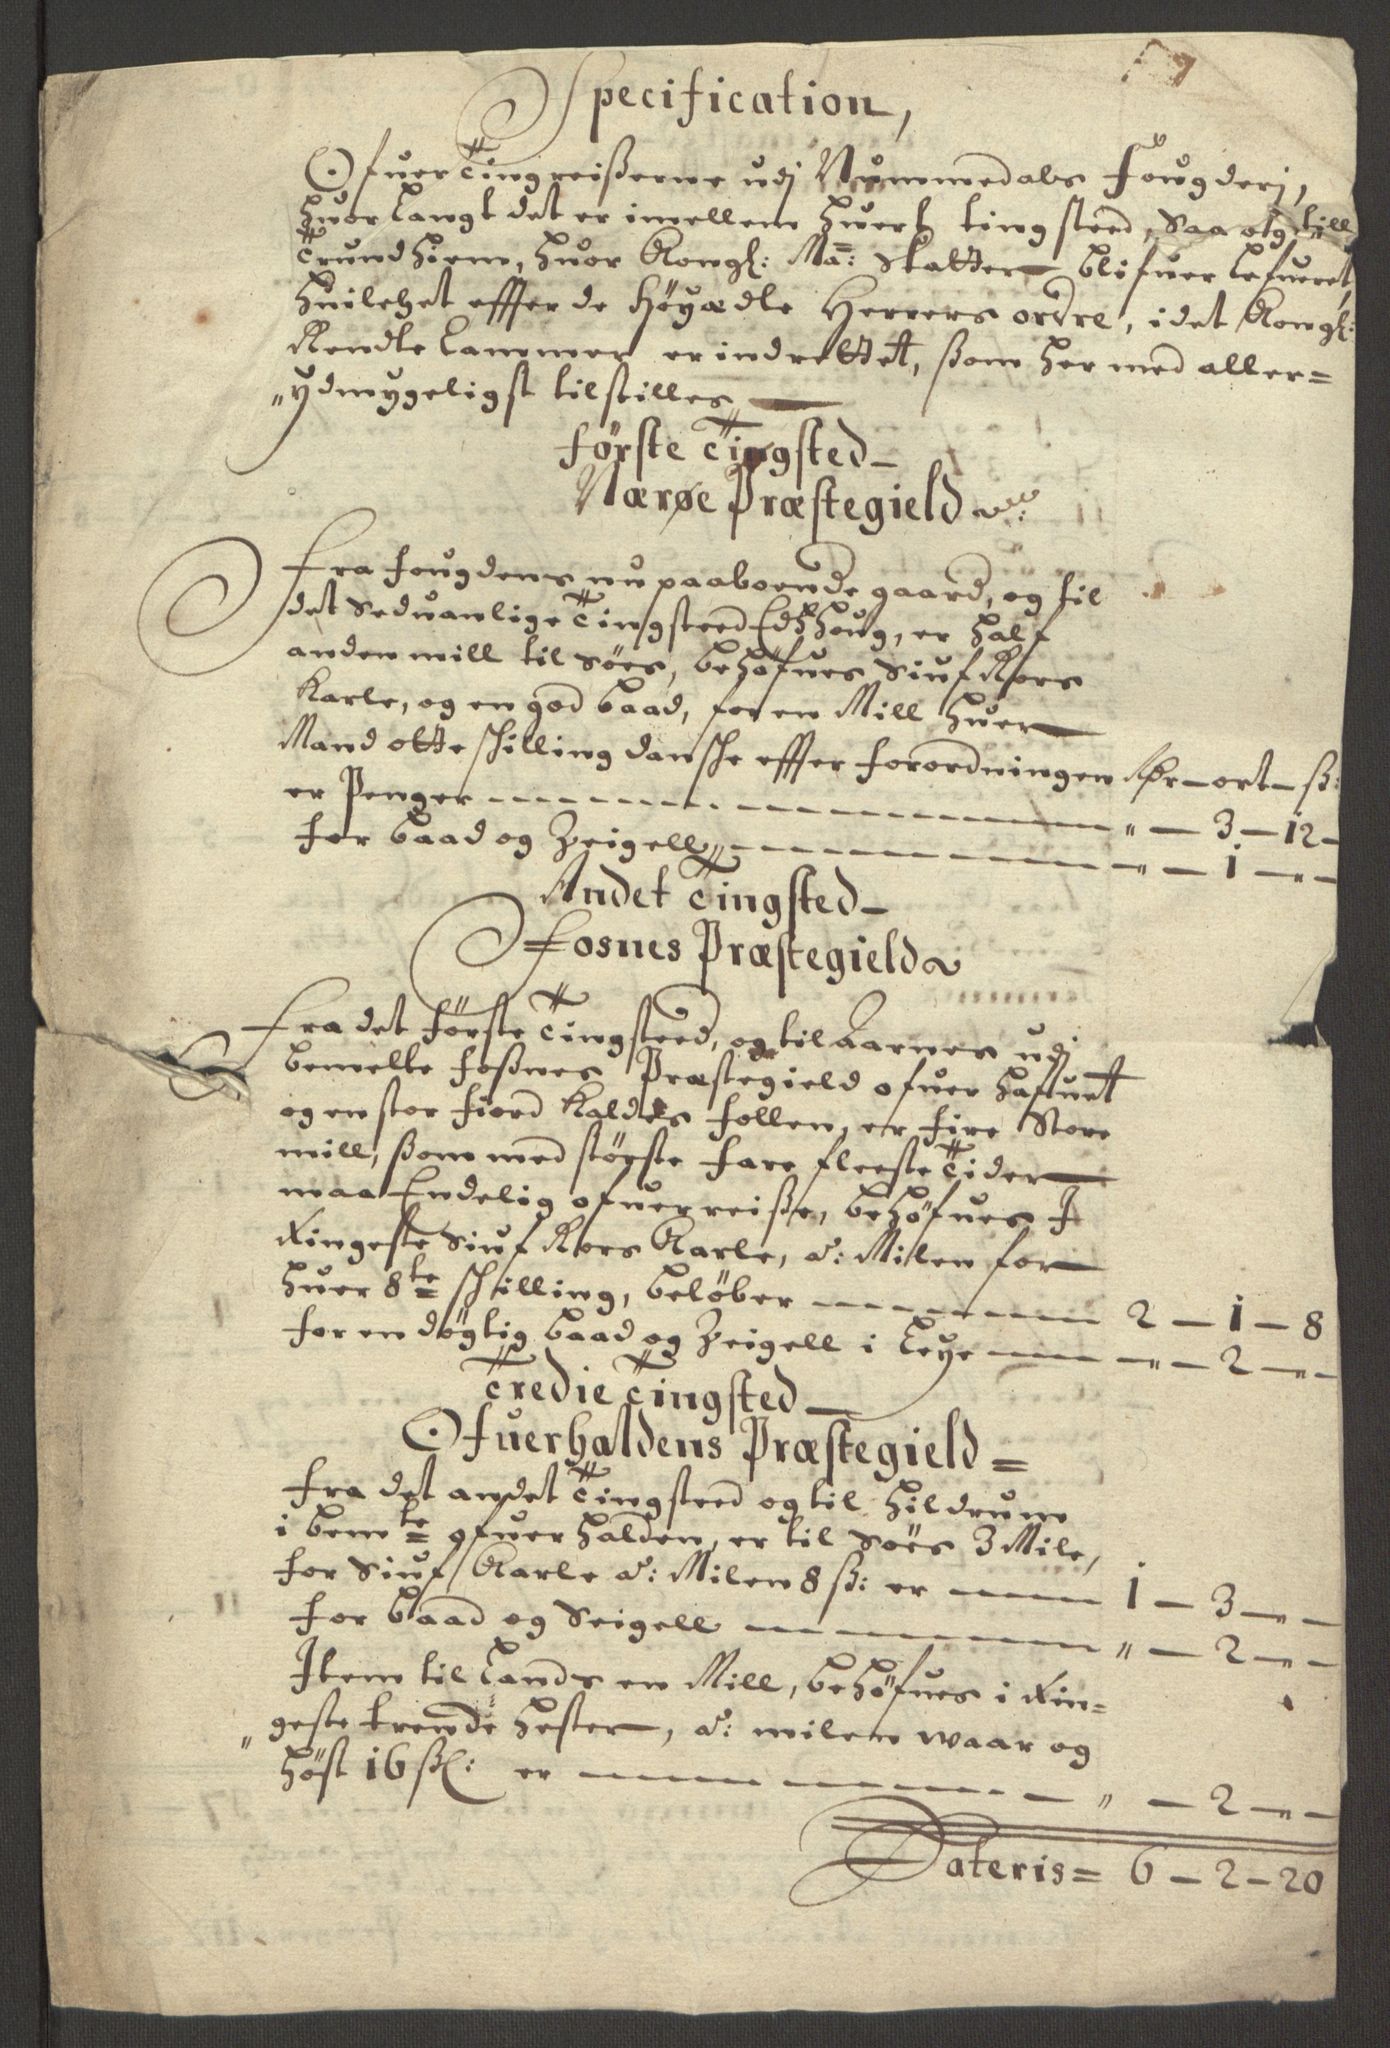 Specification,
Ofuer Tingreißerne udj Nummedals Fougderj,
huor langt det er imellem huert tingsteed, saa og till
Trundhiem, huor Kongl: Ma: skatter blifuer lefueret,
huilchet effter de Høyædle Herrers ordre, i det Kongl:
Rendte Cammer er indrettet, ßom her med aller=
"ydmygeligst tilstilles
Første Tingsted
Nærøe Præstegield
Fra fougdens nu paaboende gaard, og til
det seduanlige Tingsteed Edhhoug, er half
anden mill til Søes, behøfues siuf Rors
Karle, og en god baad, for en Mill huer
Mand otte schilling dansche effter forordningen Rdr – ort – ß:
er Penger " – 3 – 12 –
for baad og Zeigell " – 1 – " –
Andet Tingsted
Fosnes Præstegield
Fra det Første Tingsteed, og til Aarnes udj
bemelte Foßnes Præstegield ofuer hafuett
og en stor Fiord kaldes Follen, er fire store
mill, ßom med største fare fleeste Tider
maa Endelig ofuerreiße, behøfues I
Ringeste siuf Rors Karle, à: Milen for
huer 8te schilling, beløber 2 – 1 – 8
for en døgtig baad og Zeigell i Leye " – 2 – " –
Tredie Tingsted
Ofuerhaldens Præstegield =
Fra det andet Tingsteed og til Hildrum
i bemte ofuerhalden, er til Søes 3 Mile,
for siuf Karle à: Milen 8 ß: er 1 – 3 – " –
for baad og Seigell " – 2 – " –
Item til Lands en Mill, behøfues i Rin=
"geste trende hester, à: milen waar og
høst 16 ßl: er " – 2 – " –
Lateris = 6 – 2 – 20